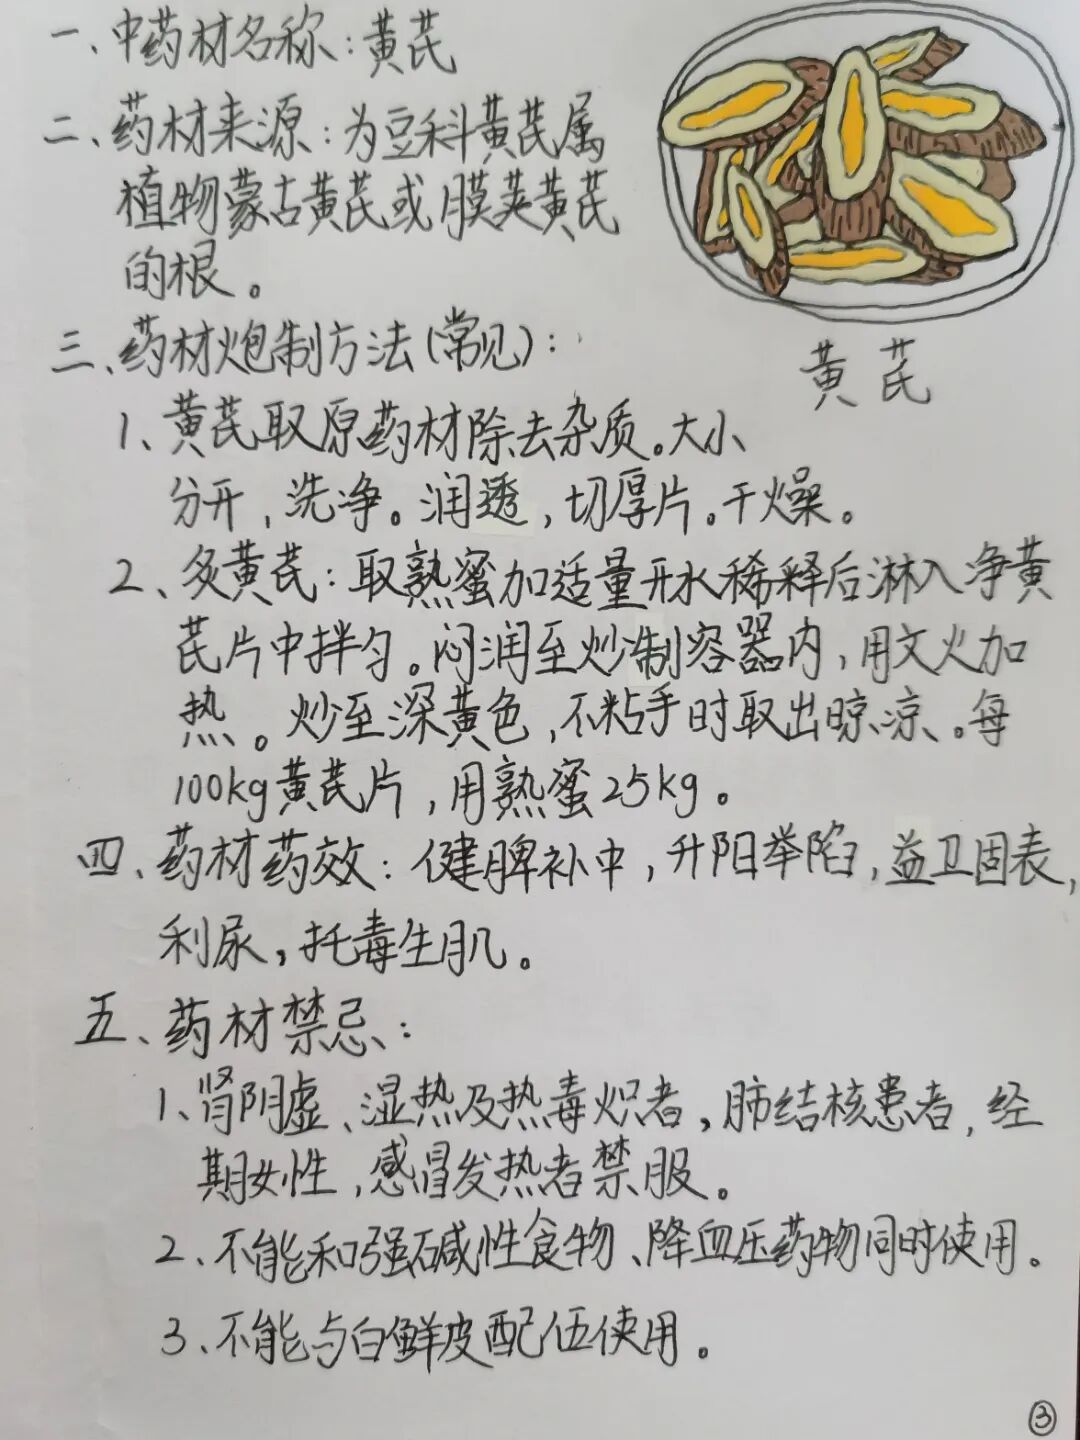 一、中药材名称:黄芪
二、药材来源:为豆科黄芪属
植物蒙古黄芪或膜荚黄芪
的根。
三、药材炮制方法(常见):
黄芪
1、黄芪取原药材除去杂质。大小
分开,洗净。润透,切厚片。干燥。
2、炙黄芪:取熟蜜加适量开水稀释后淋入净黄
芪片中拌匀。闷润至炒制容器内,用文火加
热。炒至深黄色,不粘手时取出晾凉、。每
100kg黄芪片,用熟蜜25kg。
四、药材药效:健脾补中,升阳举陷,益卫固表,
利尿,托毒生肌。
五、药材禁忌:
1、肾阴虚、湿热及热毒炽者,肺结核患者,经
期女性,感冒发热者禁服。
2、不能和强碱性食物、降血压药物同时使用。
3、不能与白鲜皮配伍使用。
③